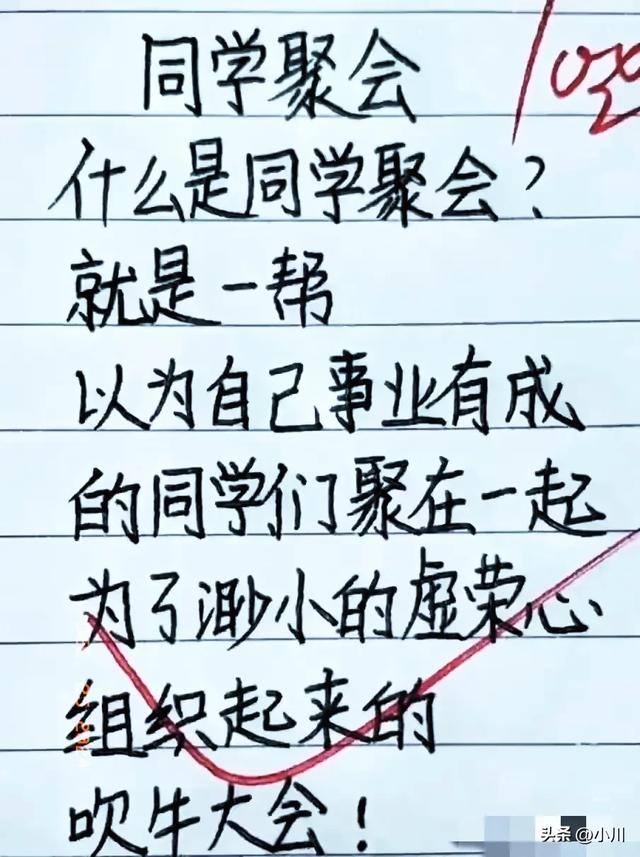 同学聚会
什么是同学聚会?
就是一帮
以为自己事业有成
的同学们聚在一起
为了渺小的虚荣心
组织起来的
吹牛大会!
头条 @小川